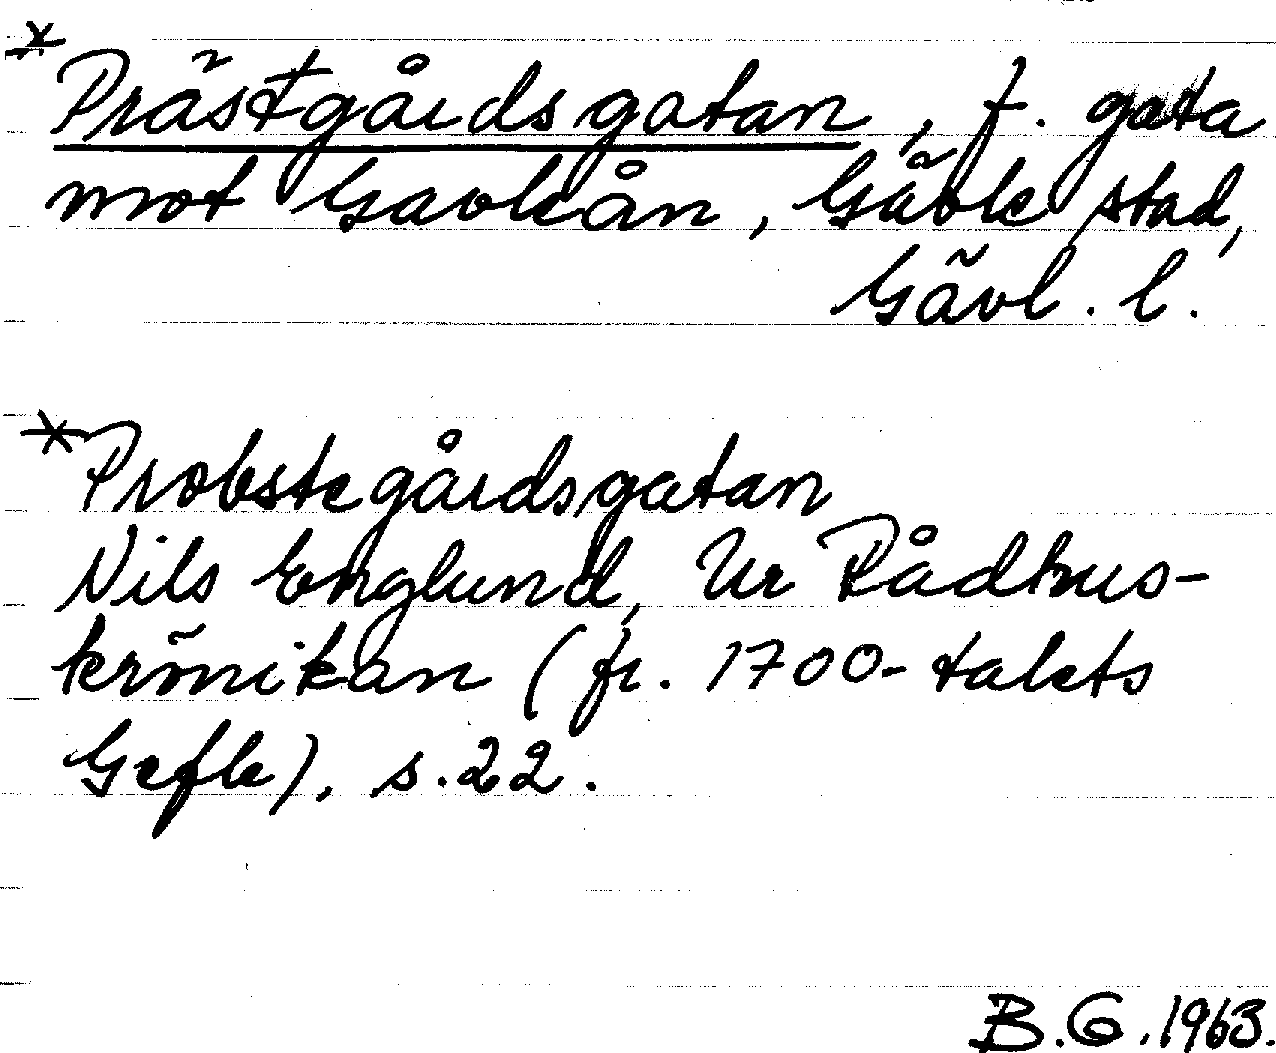 *Prästgårdsgatan, f. gata
mot Gavleån, Gävle stad,
Gävl. l.
*Probstegårdsgatan
Nils Englund, Ur Rådhus-
krönikan (fr. 1700-talets
Gefle), s. 22.
B.G. 1963.